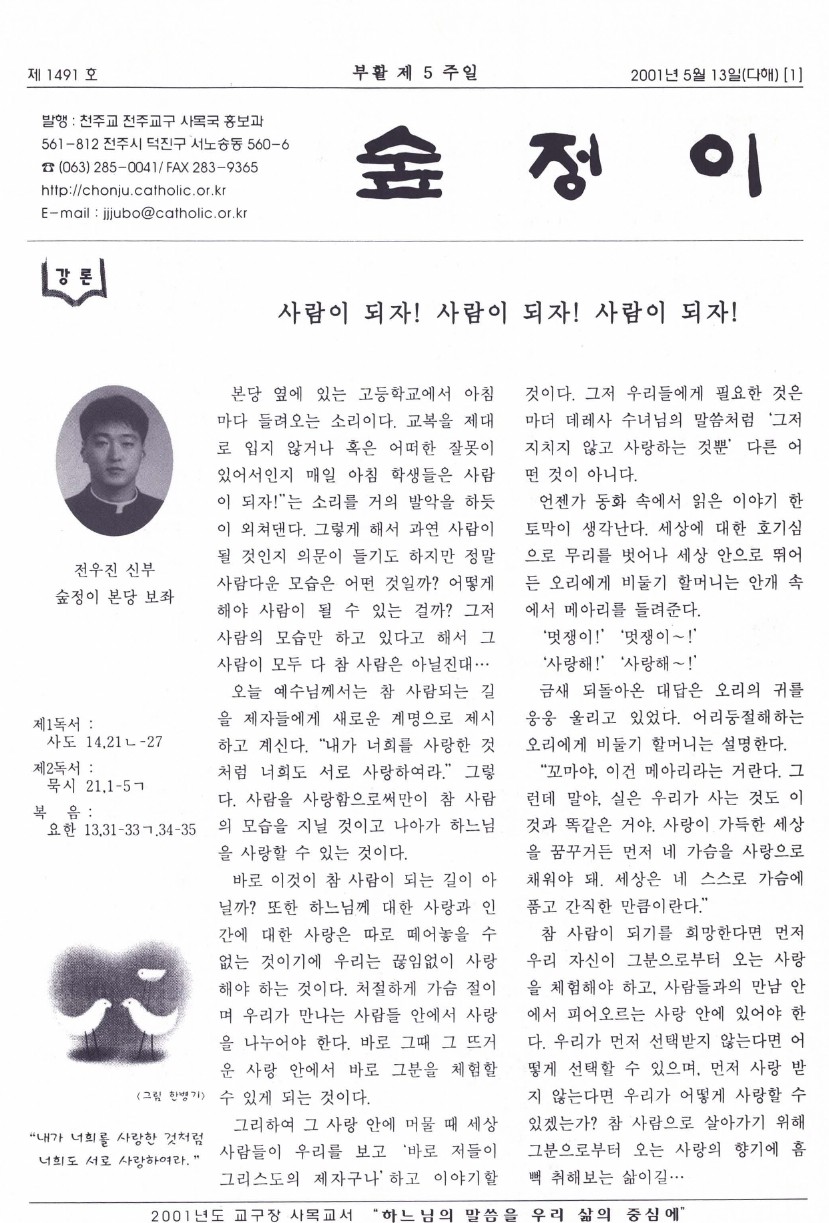 제 1491 호
부활 제 5 주일
2001년 5월 13일(다해) [1]
발행 : 천주교 전주교구 사목국 홍보과
561-812 전주시 덕진구 서노송동 560-6
☎ (063) 285-0041/ FAX 283-9365
http://chonju.catholic.or.kr
E-mail : jjjubo@catholic.or.kr
숲 정 이
강 론
사람이 되자! 사람이 되자! 사람이 되자!
전우진 신부
숲정이 본당 보좌
제1독서 :
사도 14,21ㄴ-27
제2독서 :
묵시 21,1-5ㄱ
복 음 :
요한 13,31-33ㄱ.34-35
<그림 한병기>
"내가 너희를 사랑한 것처럼
너희도 서로 사랑하여라."
본당 옆에 있는 고등학교에서 아침
마다 들려오는 소리이다. 교복을 제대
로 입지 않거나 혹은 어떠한 잘못이
있어서인지 매일 아침 학생들은 사람
이 되자!"는 소리를 거의 발악을 하듯
이 외쳐댄다. 그렇게 해서 과연 사람이
될 것인지 의문이 들기도 하지만 정말
사람다운 모습은 어떤 것일까? 어떻게
해야 사람이 될 수 있는 걸까? 그저
사람의 모습만 하고 있다고 해서 그
사람이 모두 다 참 사람은 아닐진대…
오늘 예수님께서는 참 사람되는 길
을 제자들에게 새로운 계명으로 제시
하고 계신다. "내가 너희를 사랑한 것
처럼 너희도 서로 사랑하여라." 그렇
다. 사람을 사랑함으로써만이 참 사람
의 모습을 지닐 것이고 나아가 하느님
을 사랑할 수 있는 것이다.
바로 이것이 참 사람이 되는 길이 아
닐까? 또한 하느님께 대한 사랑과 인
간에 대한 사랑은 따로 떼어놓을 수
없는 것이기에 우리는 끊임없이 사랑
해야 하는 것이다. 처절하게 가슴 절이
며 우리가 만나는 사람들 안에서 사랑
을 나누어야 한다. 바로 그때 그 뜨거
운 사랑 안에서 바로 그분을 체험할
수 있게 되는 것이다.
그리하여 그 사랑 안에 머물 때 세상
사람들이 우리를 보고 '바로 저들이
그리스도의 제자구나'하고 이야기할
것이다. 그저 우리들에게 필요한 것은
마더 데레사 수녀님의 말씀처럼 '그저
지치지 않고 사랑하는 것뿐' 다른 어
떤 것이 아니다.
언젠가 동화 속에서 읽은 이야기 한
토막이 생각난다. 세상에 대한 호기심
으로 무리를 벗어나 세상 안으로 뛰어
든 오리에게 비둘기 할머니는 안개 속
에서 메아리를 들려준다.
'멋쟁이!' '멋쟁이~!'
'사랑해!' '사랑해~!'
금새 되돌아온 대답은 오리의 귀를
웅웅 울리고 있었다. 어리둥절해하는
오리에게 비둘기 할머니는 설명한다.
"꼬마야, 이건 메아리라는 거란다. 그
런데 말야, 실은 우리가 사는 것도 이
것과 똑같은 거야. 사랑이 가득한 세상
을 꿈꾸거든 먼저 네 가슴을 사랑으로
채워야 돼. 세상은 네 스스로 가슴에
품고 간직한 만큼이란다."
참 사람이 되기를 희망한다면 먼저
우리 자신이 그분으로부터 오는 사랑
을 체험해야 하고, 사람들과의 만남 안
에서 피어오르는 사랑 안에 있어야 한
다. 우리가 먼저 선택받지 않는다면 어
떻게 선택할 수 있으며, 먼저 사랑 받
지 않는다면 우리가 어떻게 사랑할 수
있겠는가? 참 사람으로 살아가기 위해
그분으로부터 오는 사랑의 향기에 흠
뻑 취해보는 삶이길…
2001년도 교구장 사목교서 "하느님의 말씀을 우리 삶의 중심에"